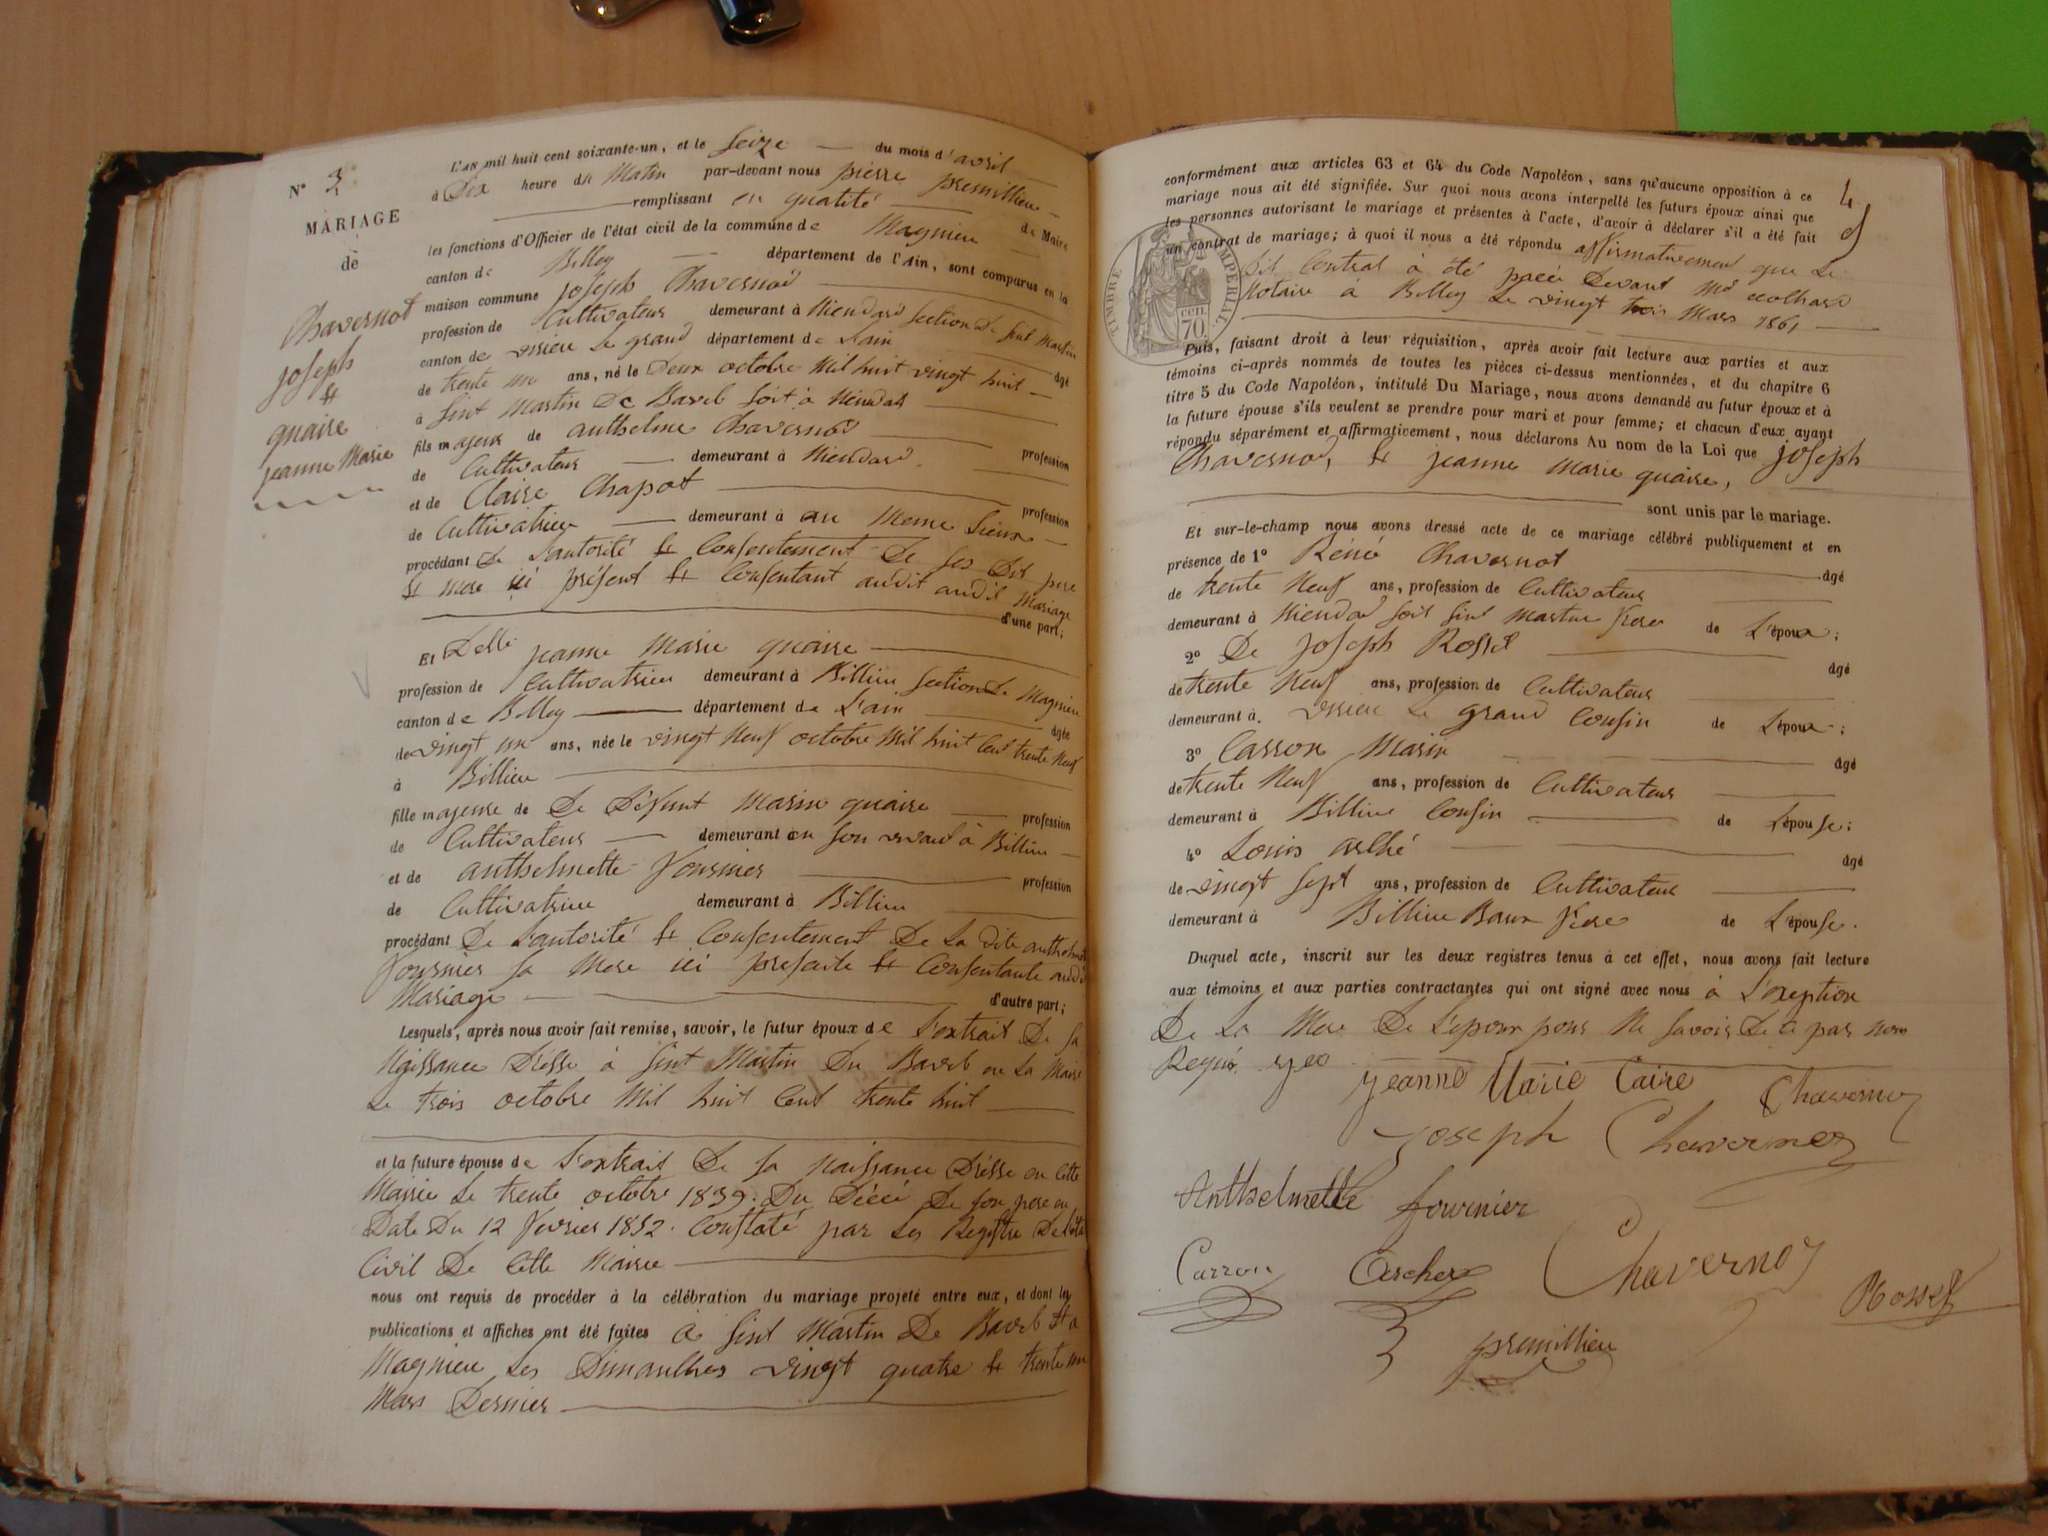 N° 3
MARIAGE
de
Chavernot
joseph
et
quaire
jeanne Marie
L'AN mil huit cent soixante-un, et le seize du mois d'avril
à Dix heure du Matin par-devant nous pierre premillieu
remplissant en qualité de Maire
les fonctions d'Officier de l'état civil de la commune de Magnieu
canton de Belley département de l'Ain, sont comparus en la
maison commune joseph Chavernod
profession de Cultivateur demeurant à section de sint Martin
canton de virieu le grand département de Lain âgé
de trente un ans, né le Deux octobre Mil huit vingt huit
à sint Martin De Bavel soit à
fils majeur de anthelme Chavernod profession
de Cultivateur demeurant à
et de Claire Chapot profession
de Cultivatrice demeurant à au Meme Lieux
procédant De L'autorité et Consentement De ses Dit pere
et mere ici présent et Consentant audit audit Mariage
d'une part;
Et Delle jeanne Marie quaire
profession de Cultivatrice demeurant à Billieu section de Magnieu
canton de Belley département de L'ain âgée
de vingt un ans, née le vingt Neuf octobre Mil huit Cent trente Neuf
à Billieu
fille majeure de De Défunt Marin quaire profession
de Cultivateur demeurant en son vivant à Billieu
et de anthelmette fournier profession
de Cultivatrice demeurant à Billieu
procédant De L'autorité et Consentement De La dite anthelmette
fournier sa Mere ici presente et Consentante audit
Mariage d'autre part;
Lesquels, après nous avoir fait remise, savoir, le futur époux de L'extrait De sa
Naissance Drésse à sint Martin Du Bavel en La Mairie
Le trois octobre Mil huit Cent trente huit
et la future épouse de L'extrait De sa Naissance Drésse en Cette
Mairie Le trente octobre 1839. Du Décé De son pere en
Date Du 12 fevrier 1852. Constaté par Les Registre De L'état
Civil De Cette Mairie
nous ont requis de procéder à la célébration du mariage projeté entre eux, et dont les
publications et affiches ont été faites à sint Martin De Bavel et a
Magnieu Les Dimanches vingt quatre et trente un
Mars Dernier
4
conformément aux articles 63 et 64 du Code Napoléon, sans qu'aucune opposition à ce
mariage nous ait été signifiée. Sur quoi nous avons interpellé les futurs époux ainsi que
les personnes autorisant le mariage et présentes à l'acte, d'avoir à déclarer s'il a été fait
un contrat de mariage; à quoi il nous a été répondu affirmativement que Le
Dit Contrat à été pacée Devant
Notaire à Belley Le vingt trois Mars 1861
TIMBRE IMPÉRIAL.
CCIL
70
Puis, faisant droit à leur réquisition, après avoir fait lecture aux parties et aux
témoins ci-après nommés de toutes les pièces ci-dessus mentionnées, et du chapitre 6
titre 5 du Code Napoléon, intitulé Du Mariage, nous avons demandé au futur époux et à
la future épouse s'ils veulent se prendre pour mari et pour femme; et chacun d'eux ayant
répondu séparément et affirmativement, nous déclarons Au nom de la Loi que joseph
Chavernod, et jeanne Marie quaire,
sont unis par le mariage.
Et sur-le-champ nous avons dressé acte de ce mariage célébré publiquement et en
présence de 1° Réné Chavernot âgé
de trente Neuf ans, profession de Cultivateur
demeurant à soit sint Martin frere de L'époux;
2° De joseph Rosset âgé
de trente Neuf ans, profession de Cultivateur
demeurant à virieu Le grand Cousin de L'époux;
3° Carron Marin âgé
de trente Neuf ans, profession de Cultivateur
demeurant à Billieu Cousin de L'épouse;
4° Louis âgé
de vingt sept ans, profession de Cultivateur
demeurant à Billieu Baux frere de L'épouse.
Duquel acte, inscrit sur les deux registres tenus à cet effet, nous avons fait lecture
aux témoins et aux parties contractantes qui ont signé avec nous à L'exeption
De La Mere De L'époux pour Ne savoir De ce par nous
Requis
jeanne Marie Caire Chavernoz
joseph Chavernoz
Anthelmette fournier
Carron Chavernoz Rosset
premillieu